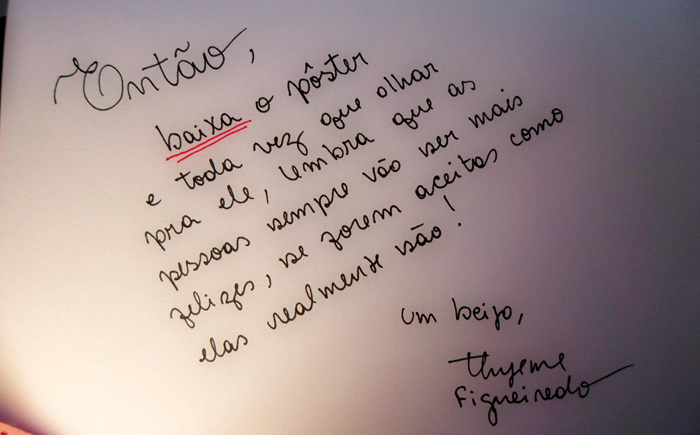 Então,
baixa o pôster
e toda vez que olhar
pra ele, lembra que as
pessoas sempre vão ser mais
felizes, se forem aceitas como
elas realmente são!
Um beijo,
Thyeme
Figueiredo